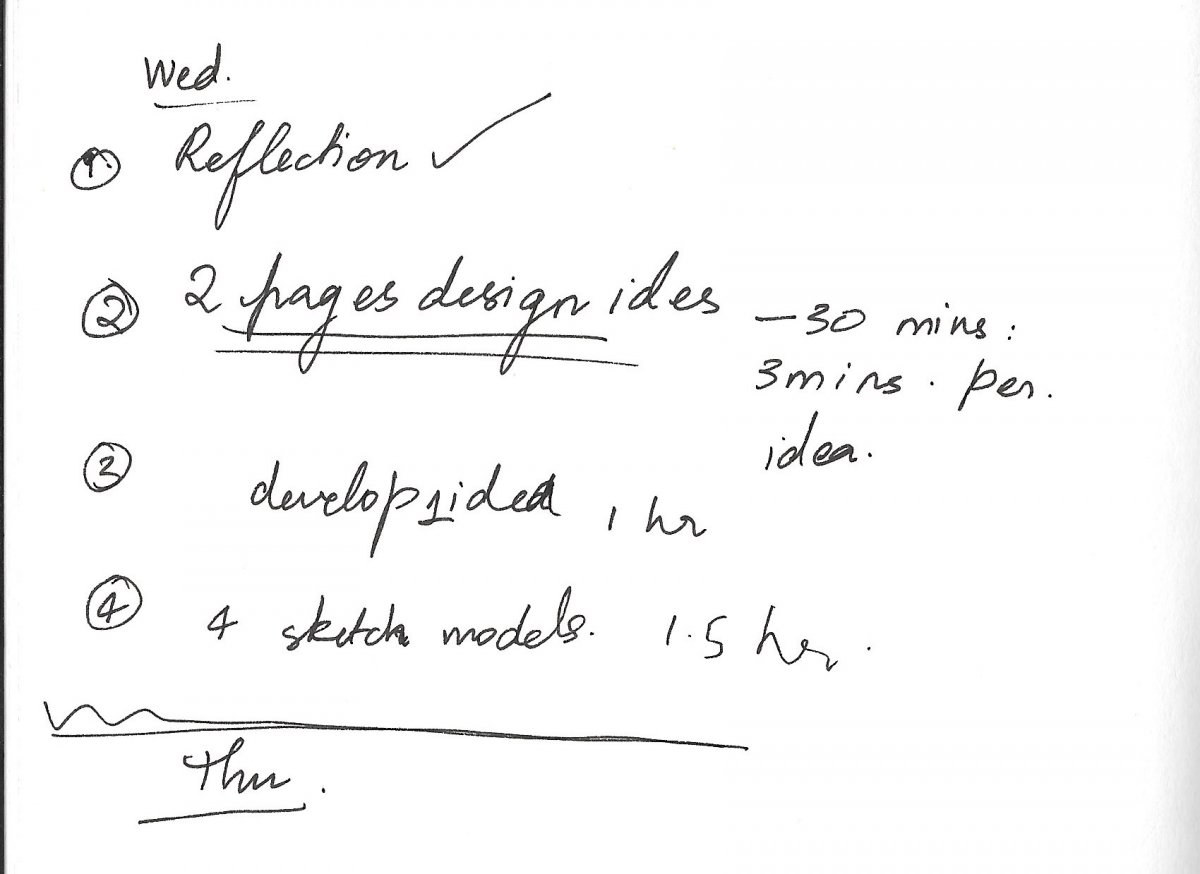 Wed.
① Reflection ✓
② 2 pages design ides
– 30 mins :
3 mins . per .
idea.
③ develop 1 idea , 1 hr
④ 4 sketch models. 1.5 hr .
Thu .